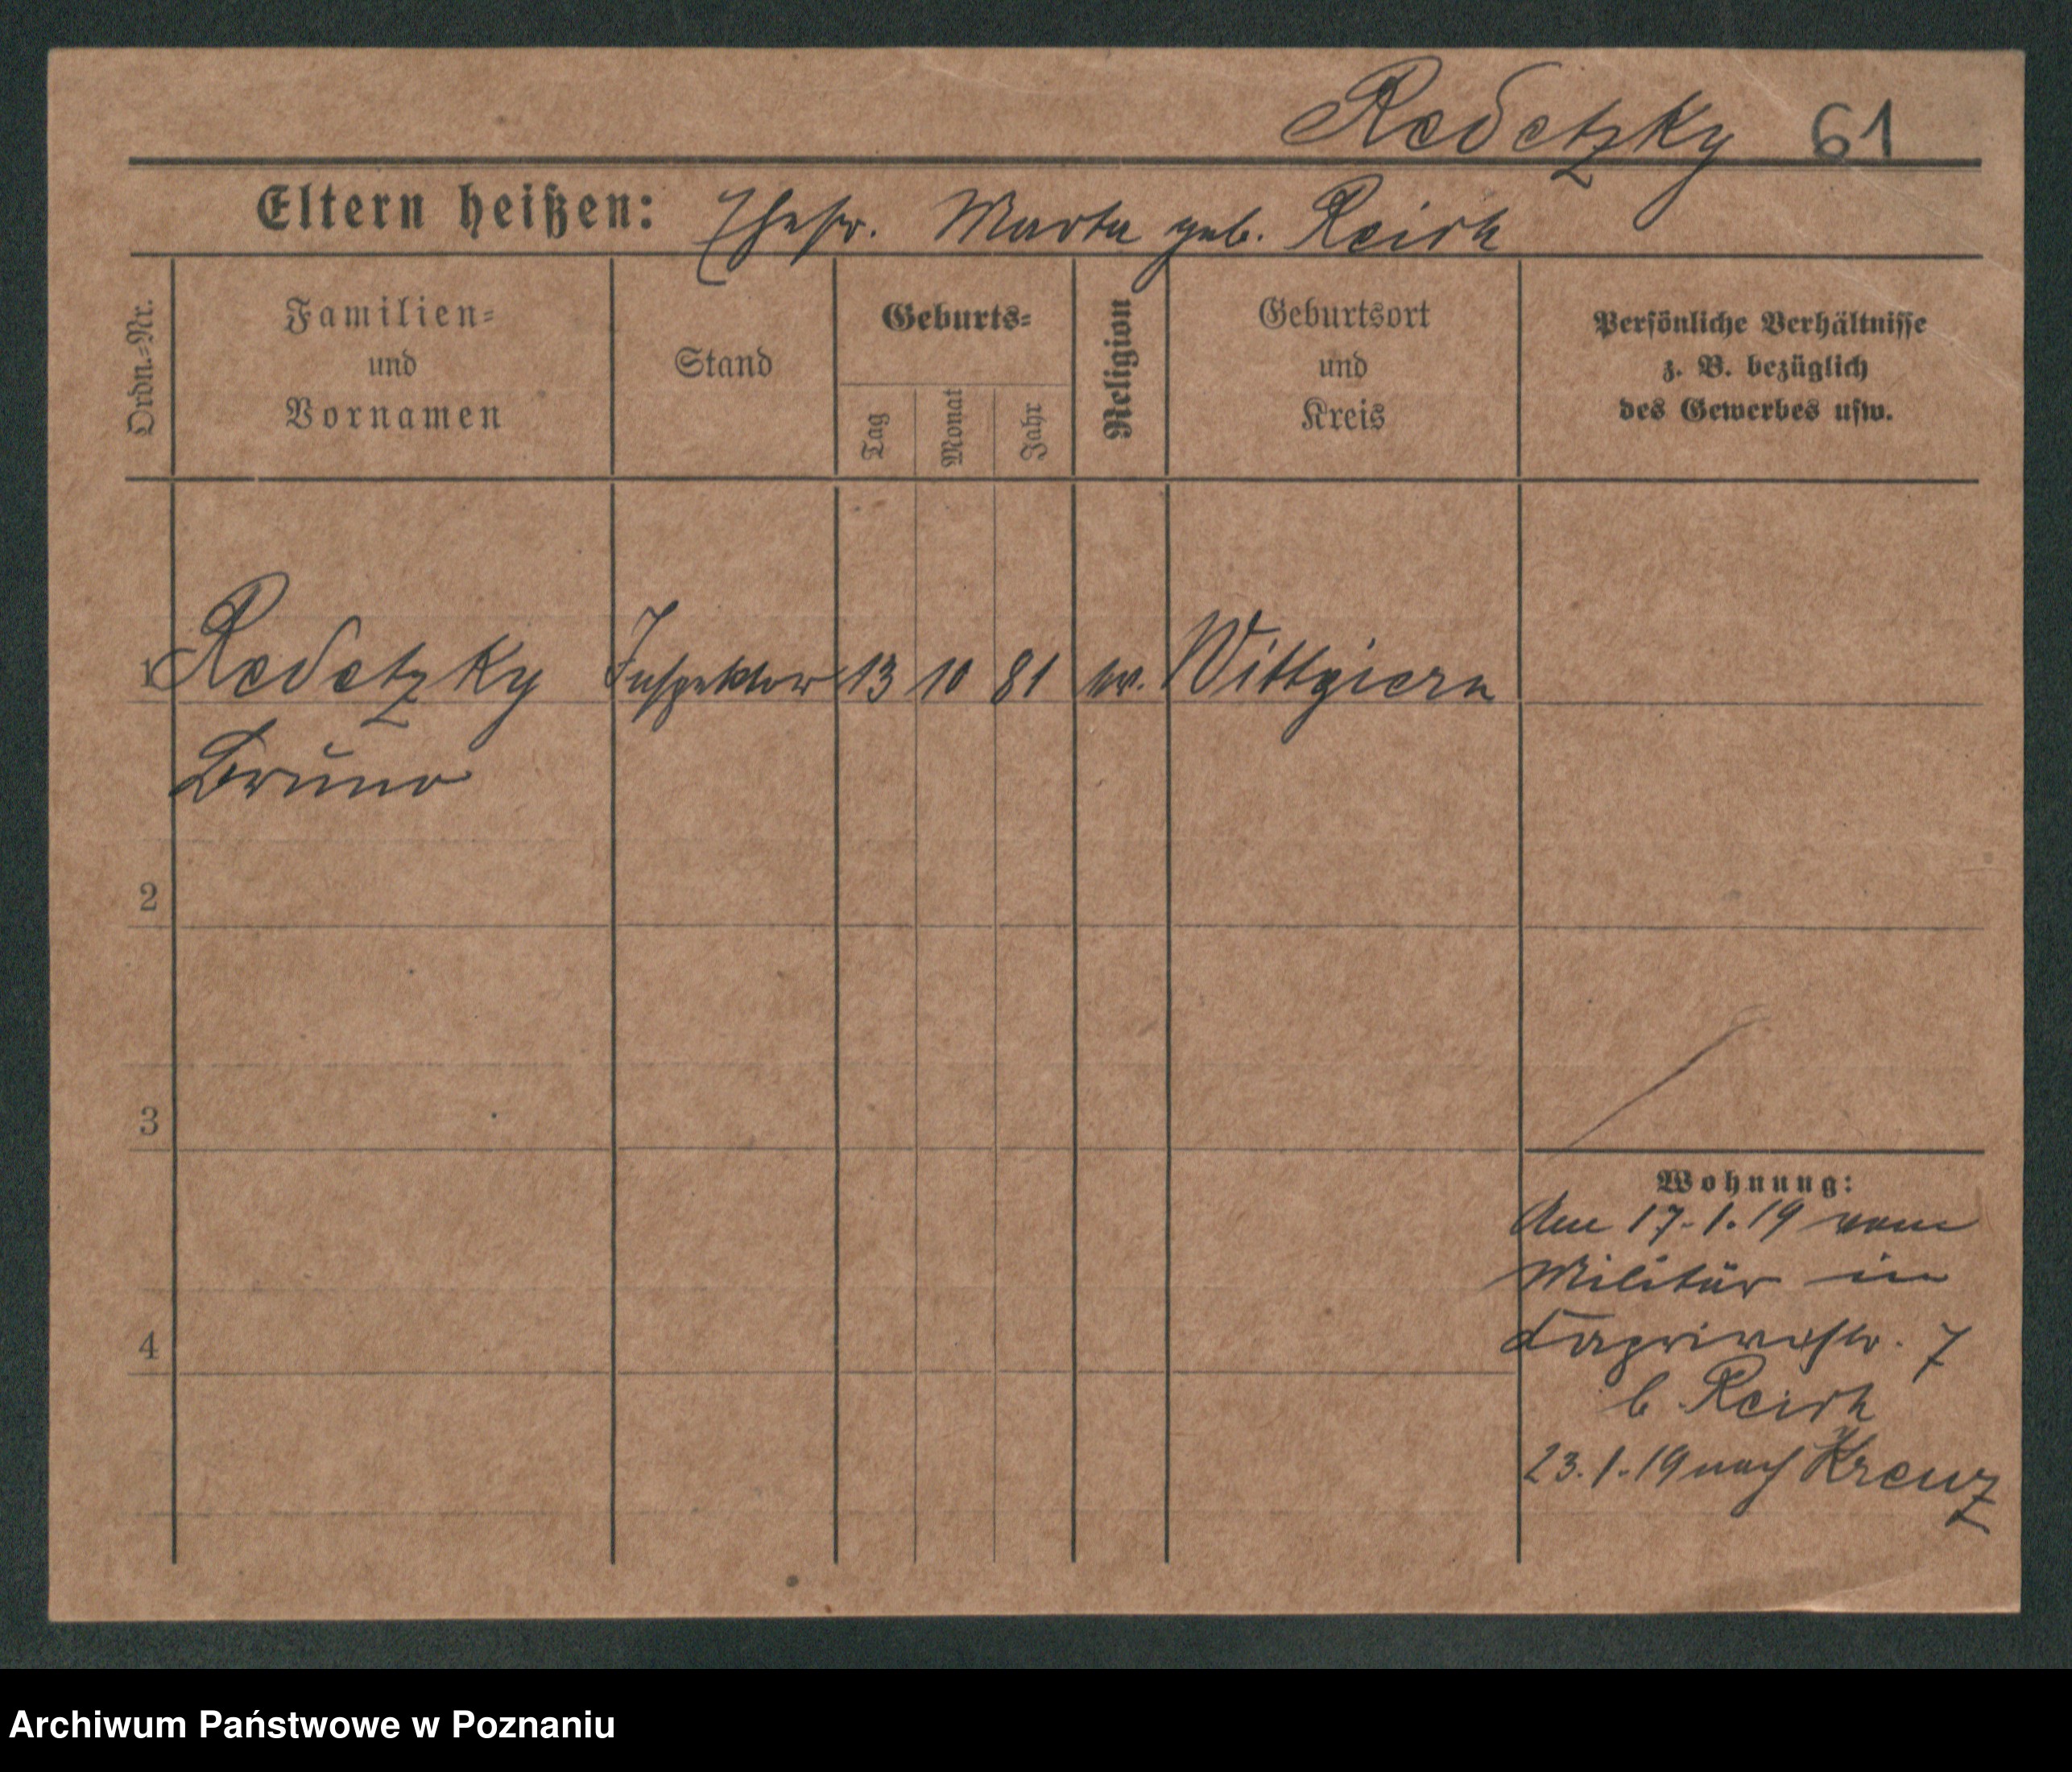 Redetzky 61
Eltern heißen: Ehefr. Marta geb. Reich
Ordn.=Nr.
Familien=
und
Vornamen
Stand
Geburts=
Tag
Monat
Jahr
Religion
Geburtsort
und
Kreis
Persönliche Verhältnisse
z. B. bezüglich
des Gewerbes usw.
1 Redetzky Inspektor 13 10 81 ev. Wittgiern
Bruno
2
3
4
Wohnung:
Am 17.1.19 vom
Militär in
Caprivistr. 7
b. Reich
23.1.19 nach Kreuz
Archiwum Państwowe w Poznaniu